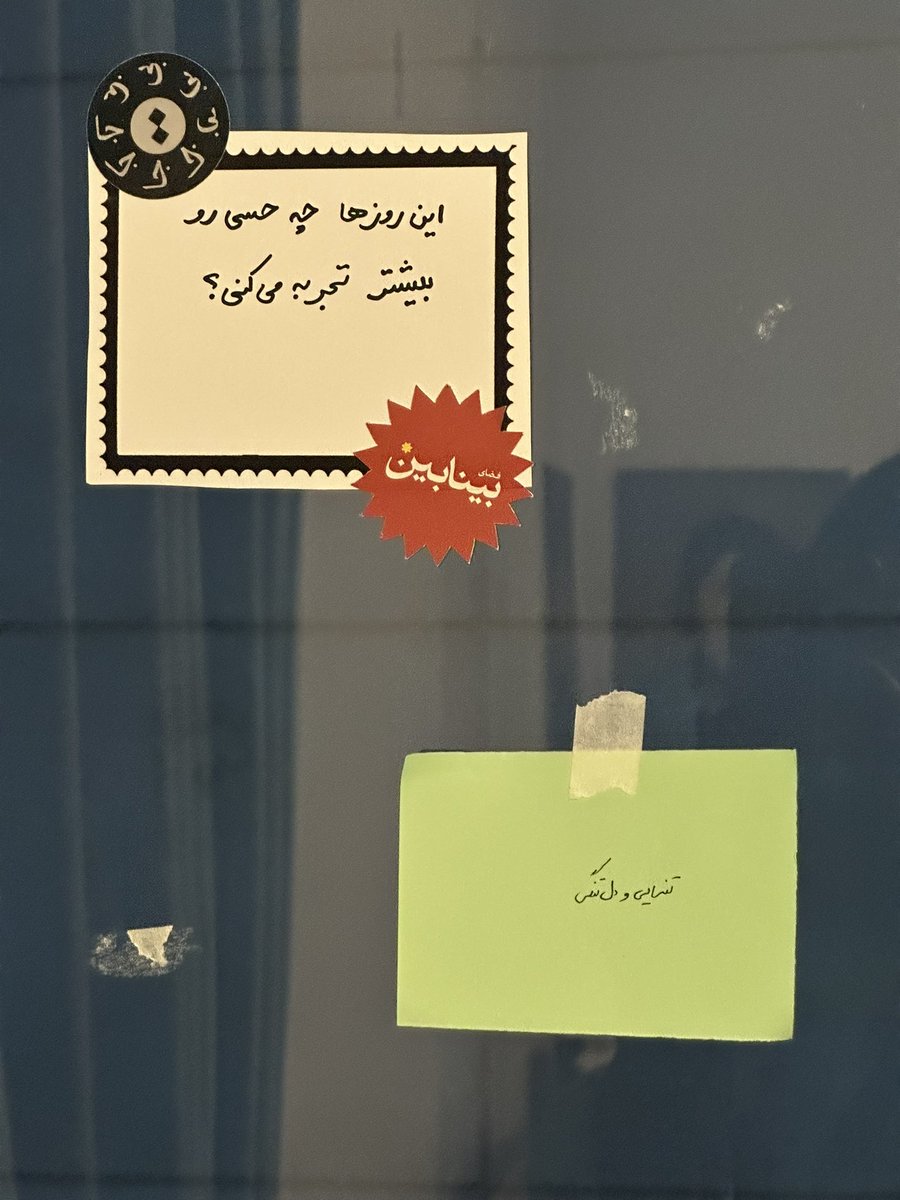 این روزها چه حسی رو
بیشتر تجربه می‌کنی؟
فضای
بینابین
تنهایی و دل‌تنگی